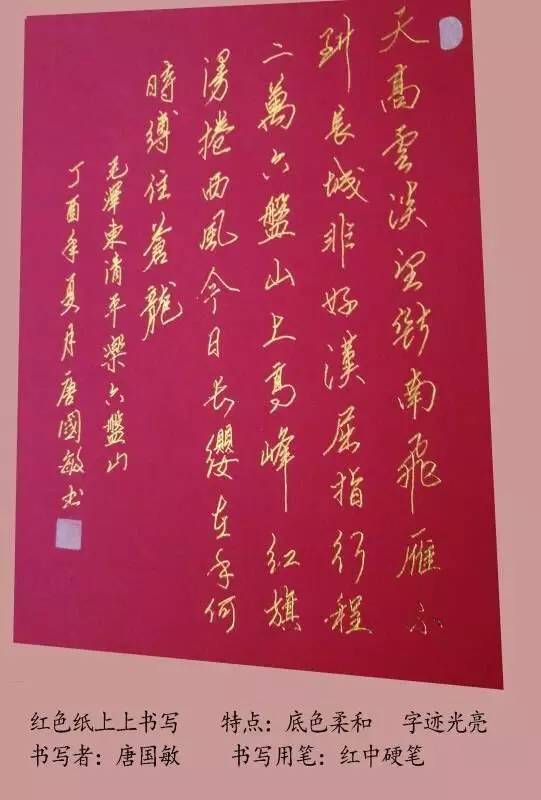 天高雲淡望斷南飛雁不
到長城非好漢屈指行程
二萬六盤山上高峰红旗
漫捲西風今日長纓在手何
時縛住蒼龍
毛澤東清平樂六盤山
丁酉年夏月唐國敏书
红色纸上上书写 特点：底色柔和 字迹光亮
书写者：唐国敏 书写用笔：红中硬笔